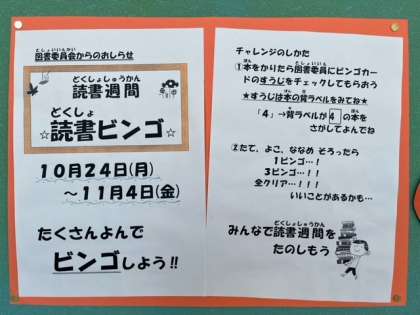 図書委員会からのおしらせ
読書週間
☆読書ビンゴ☆
10月24日(月)
～11月4日(金)
たくさんよんで
ビンゴしよう!!
チャレンジのしかた
①本をかりたら図書委員にビンゴカー
ドのすうじをチェックしてもらおう
★すうじは本の背ラベルをみてね★
「4」→背ラベルが 4 の本を
さがしてよんでね
②たて、よこ、ななめ そろったら
1ビンゴ…!
3ビンゴ…!!
全クリア…!!!
いいことがあるかも…
みんなで読書週間を
たのしもう